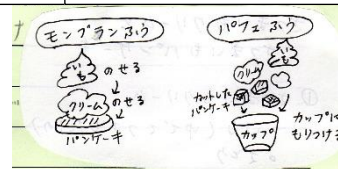 モンブランふう
いも
のせる
クリーム
のせる
パンケーキ
パフェふう
いも
クリーム
カットした
パンケーキ
カップ
カップに
もりつける